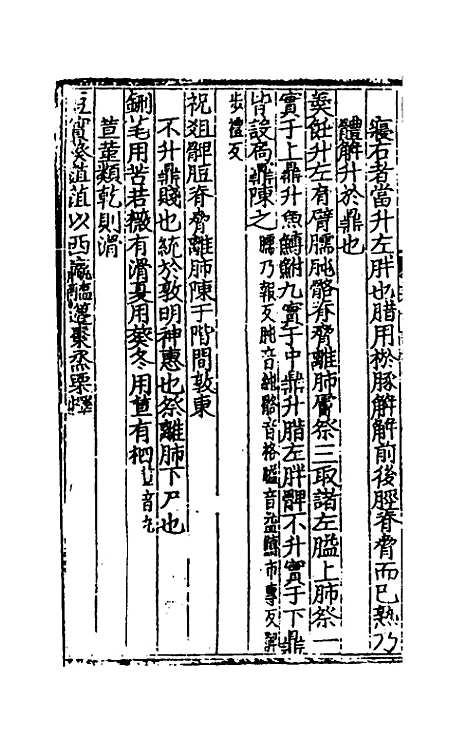 寢右者當升左胖也腊用於豚解解前後脛脊脅而已熟乃
體解升於鼎也
羹飪升左肩臂臑肫骼脊脅離肺膚祭三取諸左膉上肺祭一
實于上鼎升魚鱄鮒九實于中鼎升腊左胖髀不升實于下鼎
皆設扃鼏陳之臑乃報反肫音純骼音格膉音益鱄市專反髀
步禮反
祝俎髀脰脊脅離肺陳于階間敦東
不升鼎賤也統於敦明神惠也祭離肺下尸也
鉶芼用苦若薇有滑夏用葵冬用荁有柶荁音丸
荁堇類乾則滑
豆實葵菹菹以西蠃醢籩棗烝栗擇